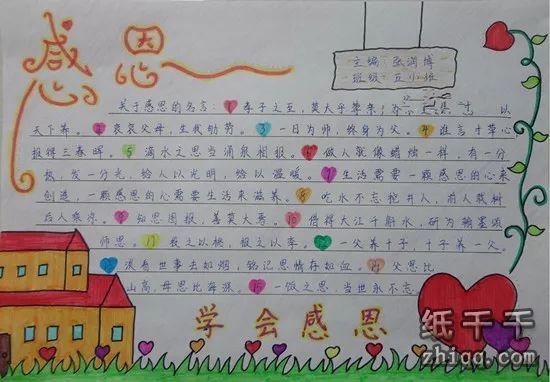 感恩
主编：张润博
班级：五小班
关于感恩的名言：1 孝子之至，莫大乎尊亲； 以
天下养。2 哀哀父母，生我劬劳。3 一日为师，终身为父。4 谁言寸草心
报得三春晖。5 滴水之恩当涌泉相报。6 做人就像蜡烛一样，有一分
热，发一分光，给人以光明，给以温暖。7 生活需要一颗感恩的心来
创造，一颗感恩的心需要生活来滋养。8 吃水不忘挖井人，前人栽树
后人乘凉。9 知恩图报，善莫大焉。10 借得大江千斛水，研为翰墨颂
师恩。11 投之以桃，报之以李。12 一父养十子，十子养一父。
淡看世事去如烟，铭记恩情存如血。14 父恩比
山高，母恩比海深。15 一饭之恩，当世永不忘。
学会感恩
纸千千
zhiqq.com